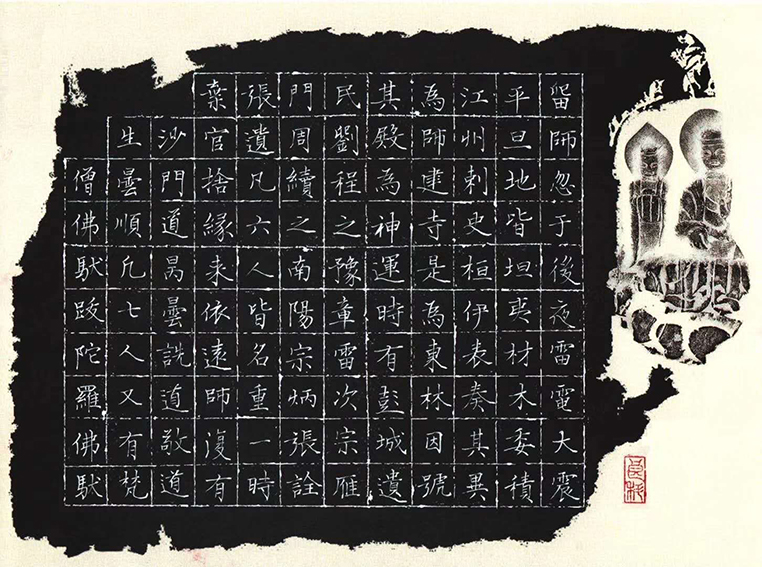 留師忽于後夜雷電大震
平旦地皆坦夷材木委積
江州刺史桓伊表奏其異
為師建寺是為東林因號
其殿為神運時有彭城遺
民劉程之豫章雷次宗雁
門周續之南陽宗炳張詮
張遺凡六人皆名重一時
棄官捨緣来依遠師復有
沙門道昺曇詵道敬道
生曇順凡七人又有梵
僧佛馱跋陀羅佛馱